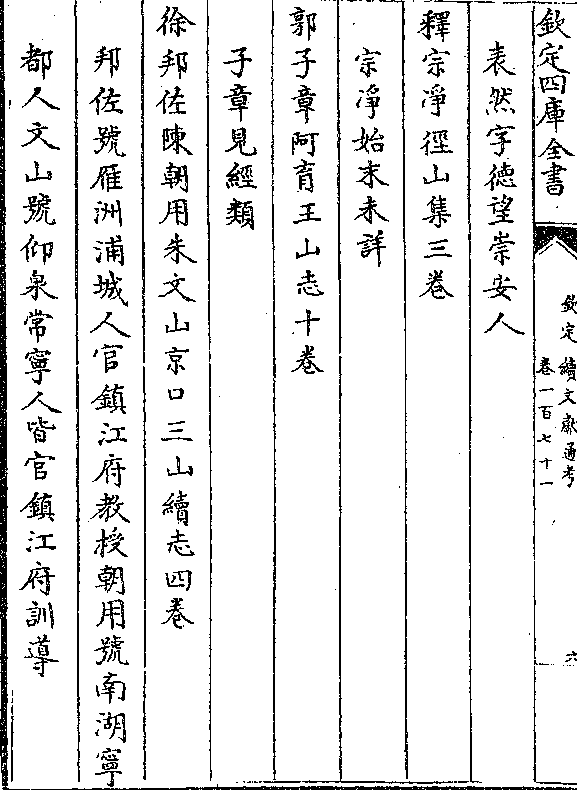 欽定四庫全書
欽定續文獻通考
卷一百七十一
六
表然字德望崇安人
釋宗淨徑山集三卷
宗淨始末未詳
郭子章阿育王山志十卷
子章見經類
徐邦佐陳朝用朱文山京口三山續志四卷
邦佐號雁洲浦城人官鎮江府教授朝用號南湖寧
都人文山號仰泉常寧人皆官鎮江府訓導